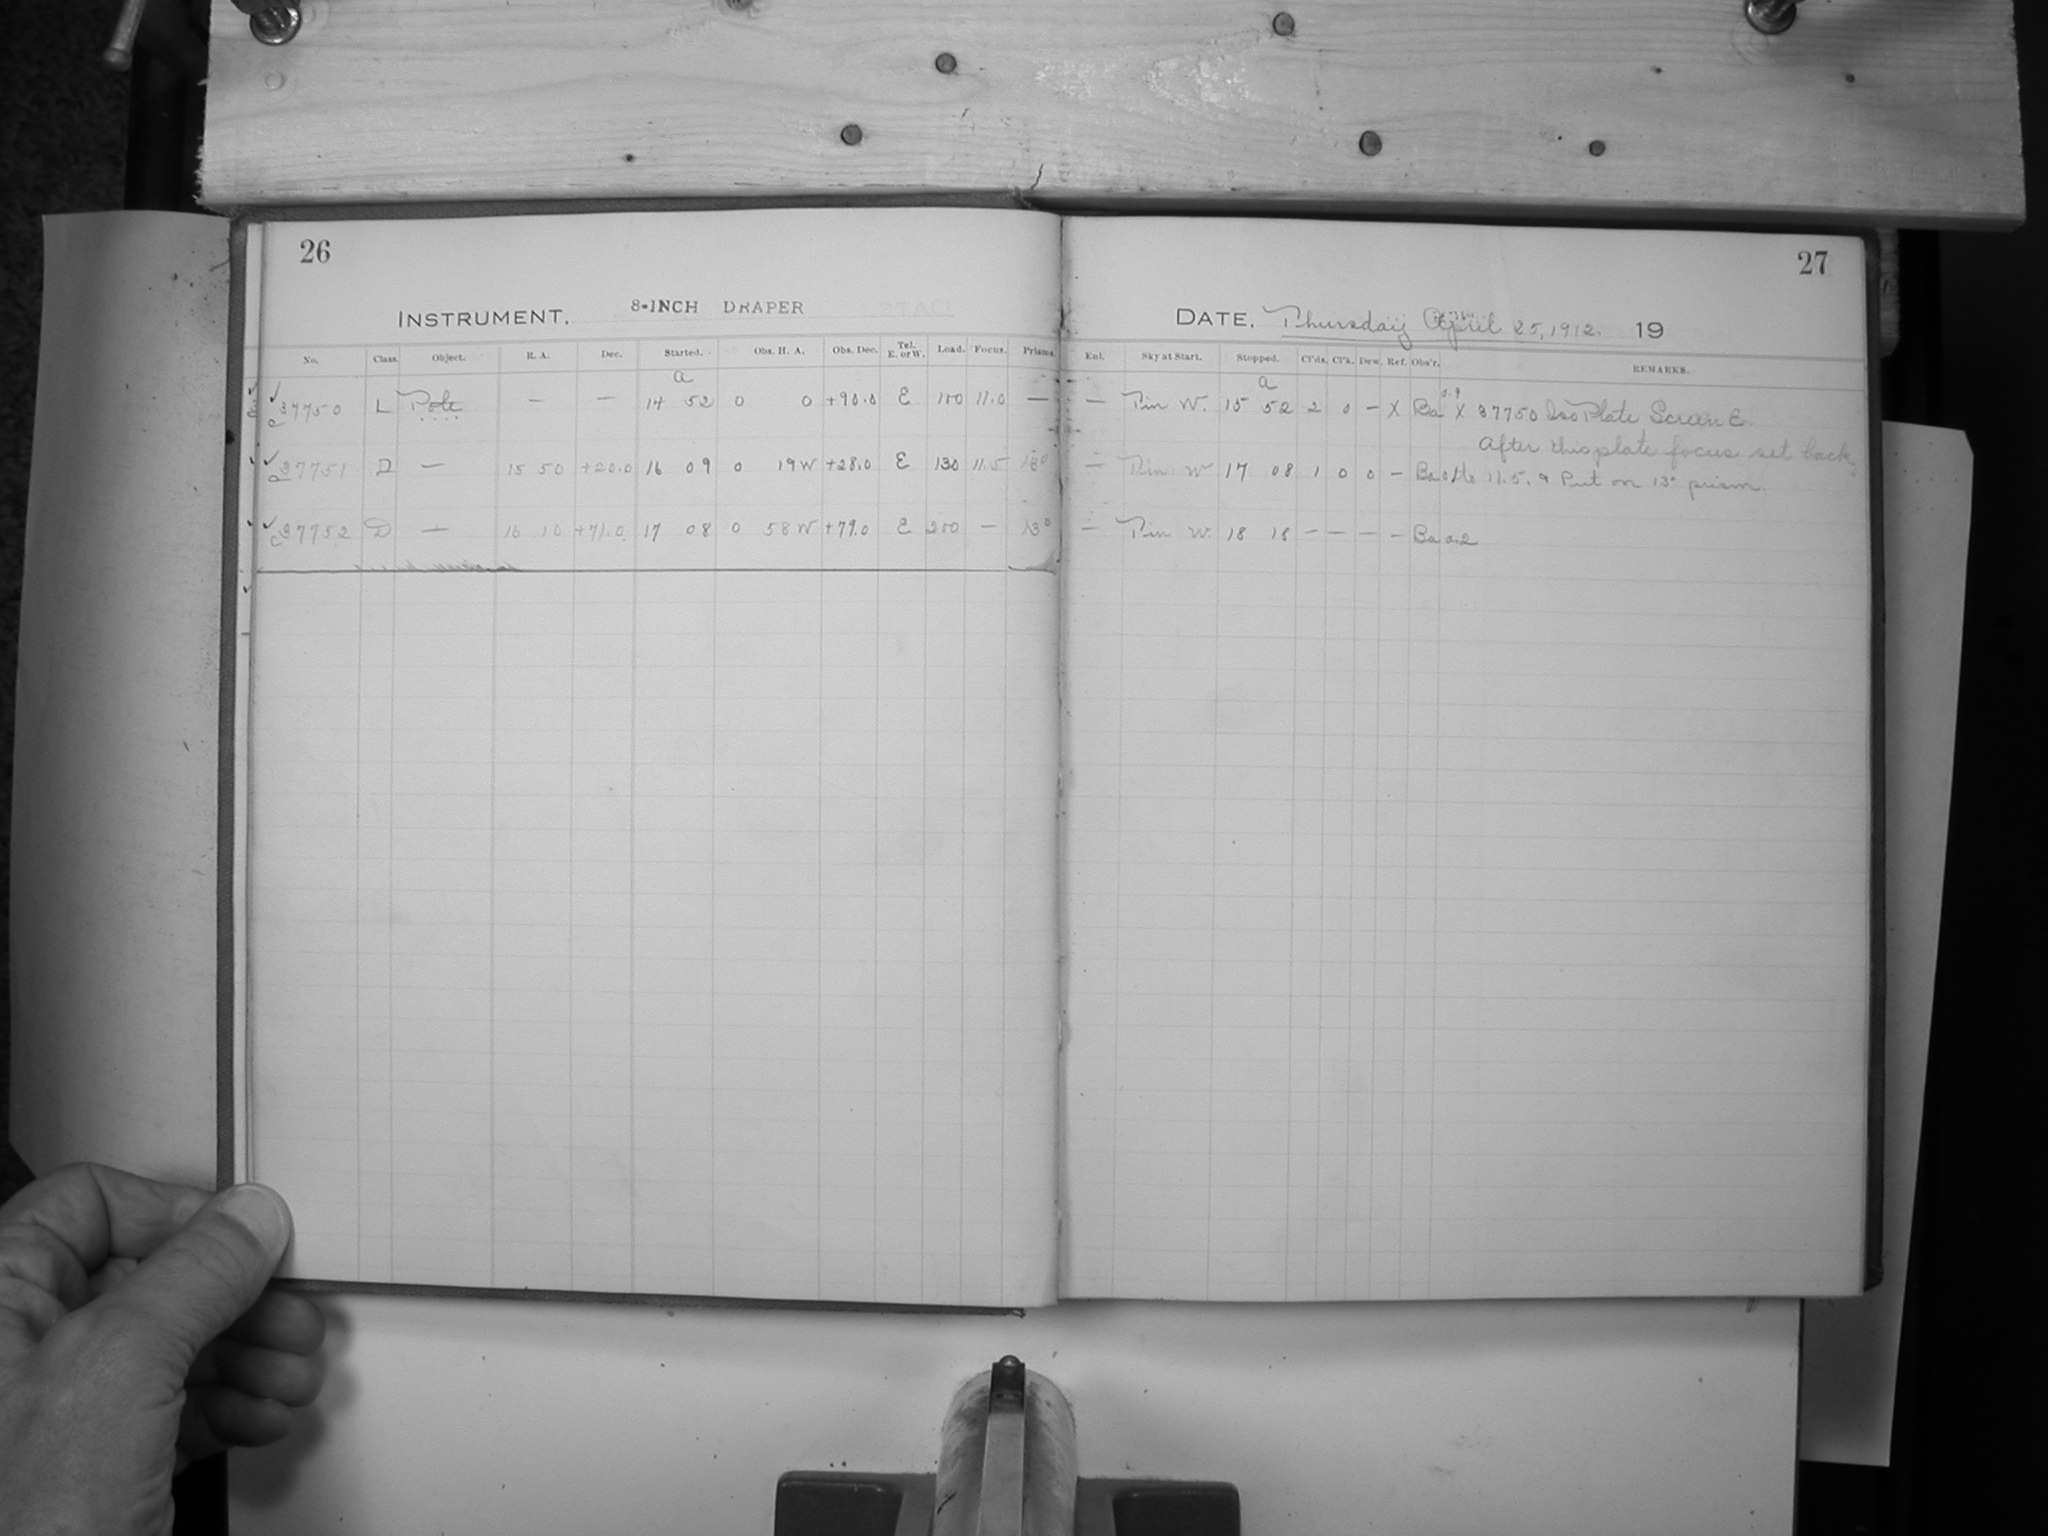 26
INSTRUMENT. 8-INCH DRAPER
No. Class. Object. R. A. Dec. Started. Obs. H. A. Obs. Dec. Tel. E. or W. Load. Focus. Prisms.
a
✓ c 37750 L Pole — — 14 52 0 0 +90.0 E 100 11.0 —
✓ c 37751 D — 15 50 +20.0 16 09 0 19 W +28.0 E 130 11.5 13°
✓ c 37752 D — 16 10 +71.0 17 08 0 58 W +77.0 E 200 — 13°
27
DATE, Thursday April 25, 1912. 19
Enl. Sky at Start. Stopped. Cl'ds. Cl'k. Dew. Ref. Obs'r. REMARKS.
a
— W. 15 52 2 0 — X Ba 0.9 X 37750 Iso Plate Screen E.
After this plate focus set back
— W 17 08 1 0 0 — Ba to 11.5. & Put on 13° prism.
— W. 18 18 — — — — Ba 0.2